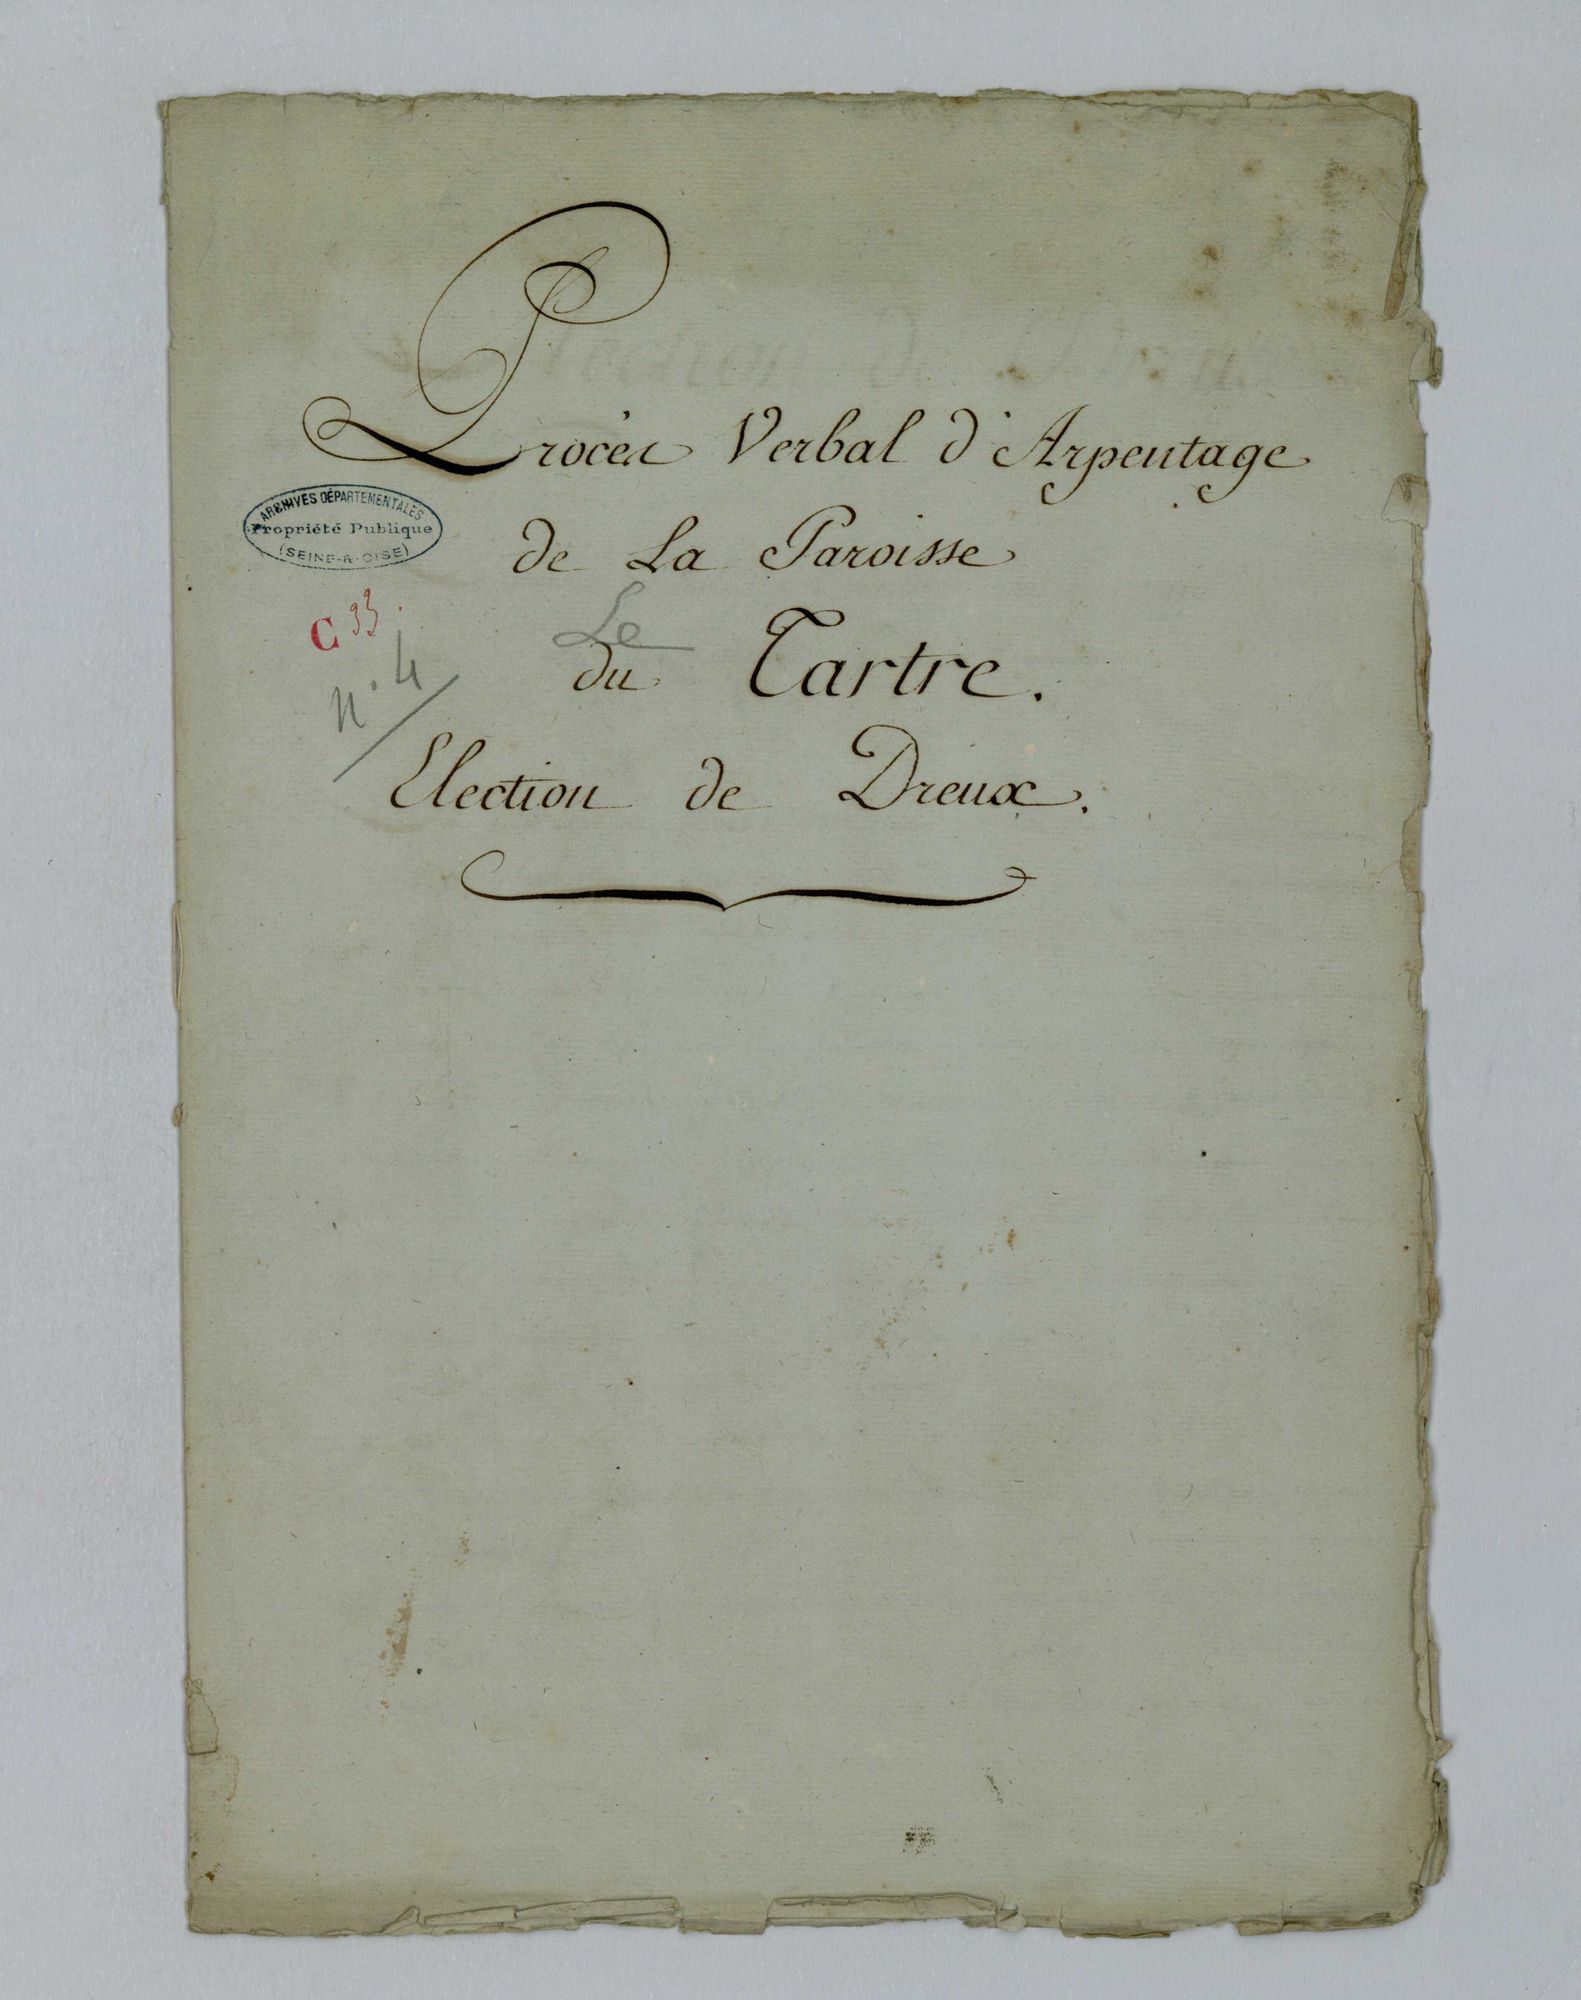 Procès Verbal d'Arpentage
ARCHIVES DÉPARTEMENTALES
Propriété Publique
(SEINE-&-OISE)
de La Paroisse
C 93.
Le
du Tartre.
n° 4
Election de Dreux.